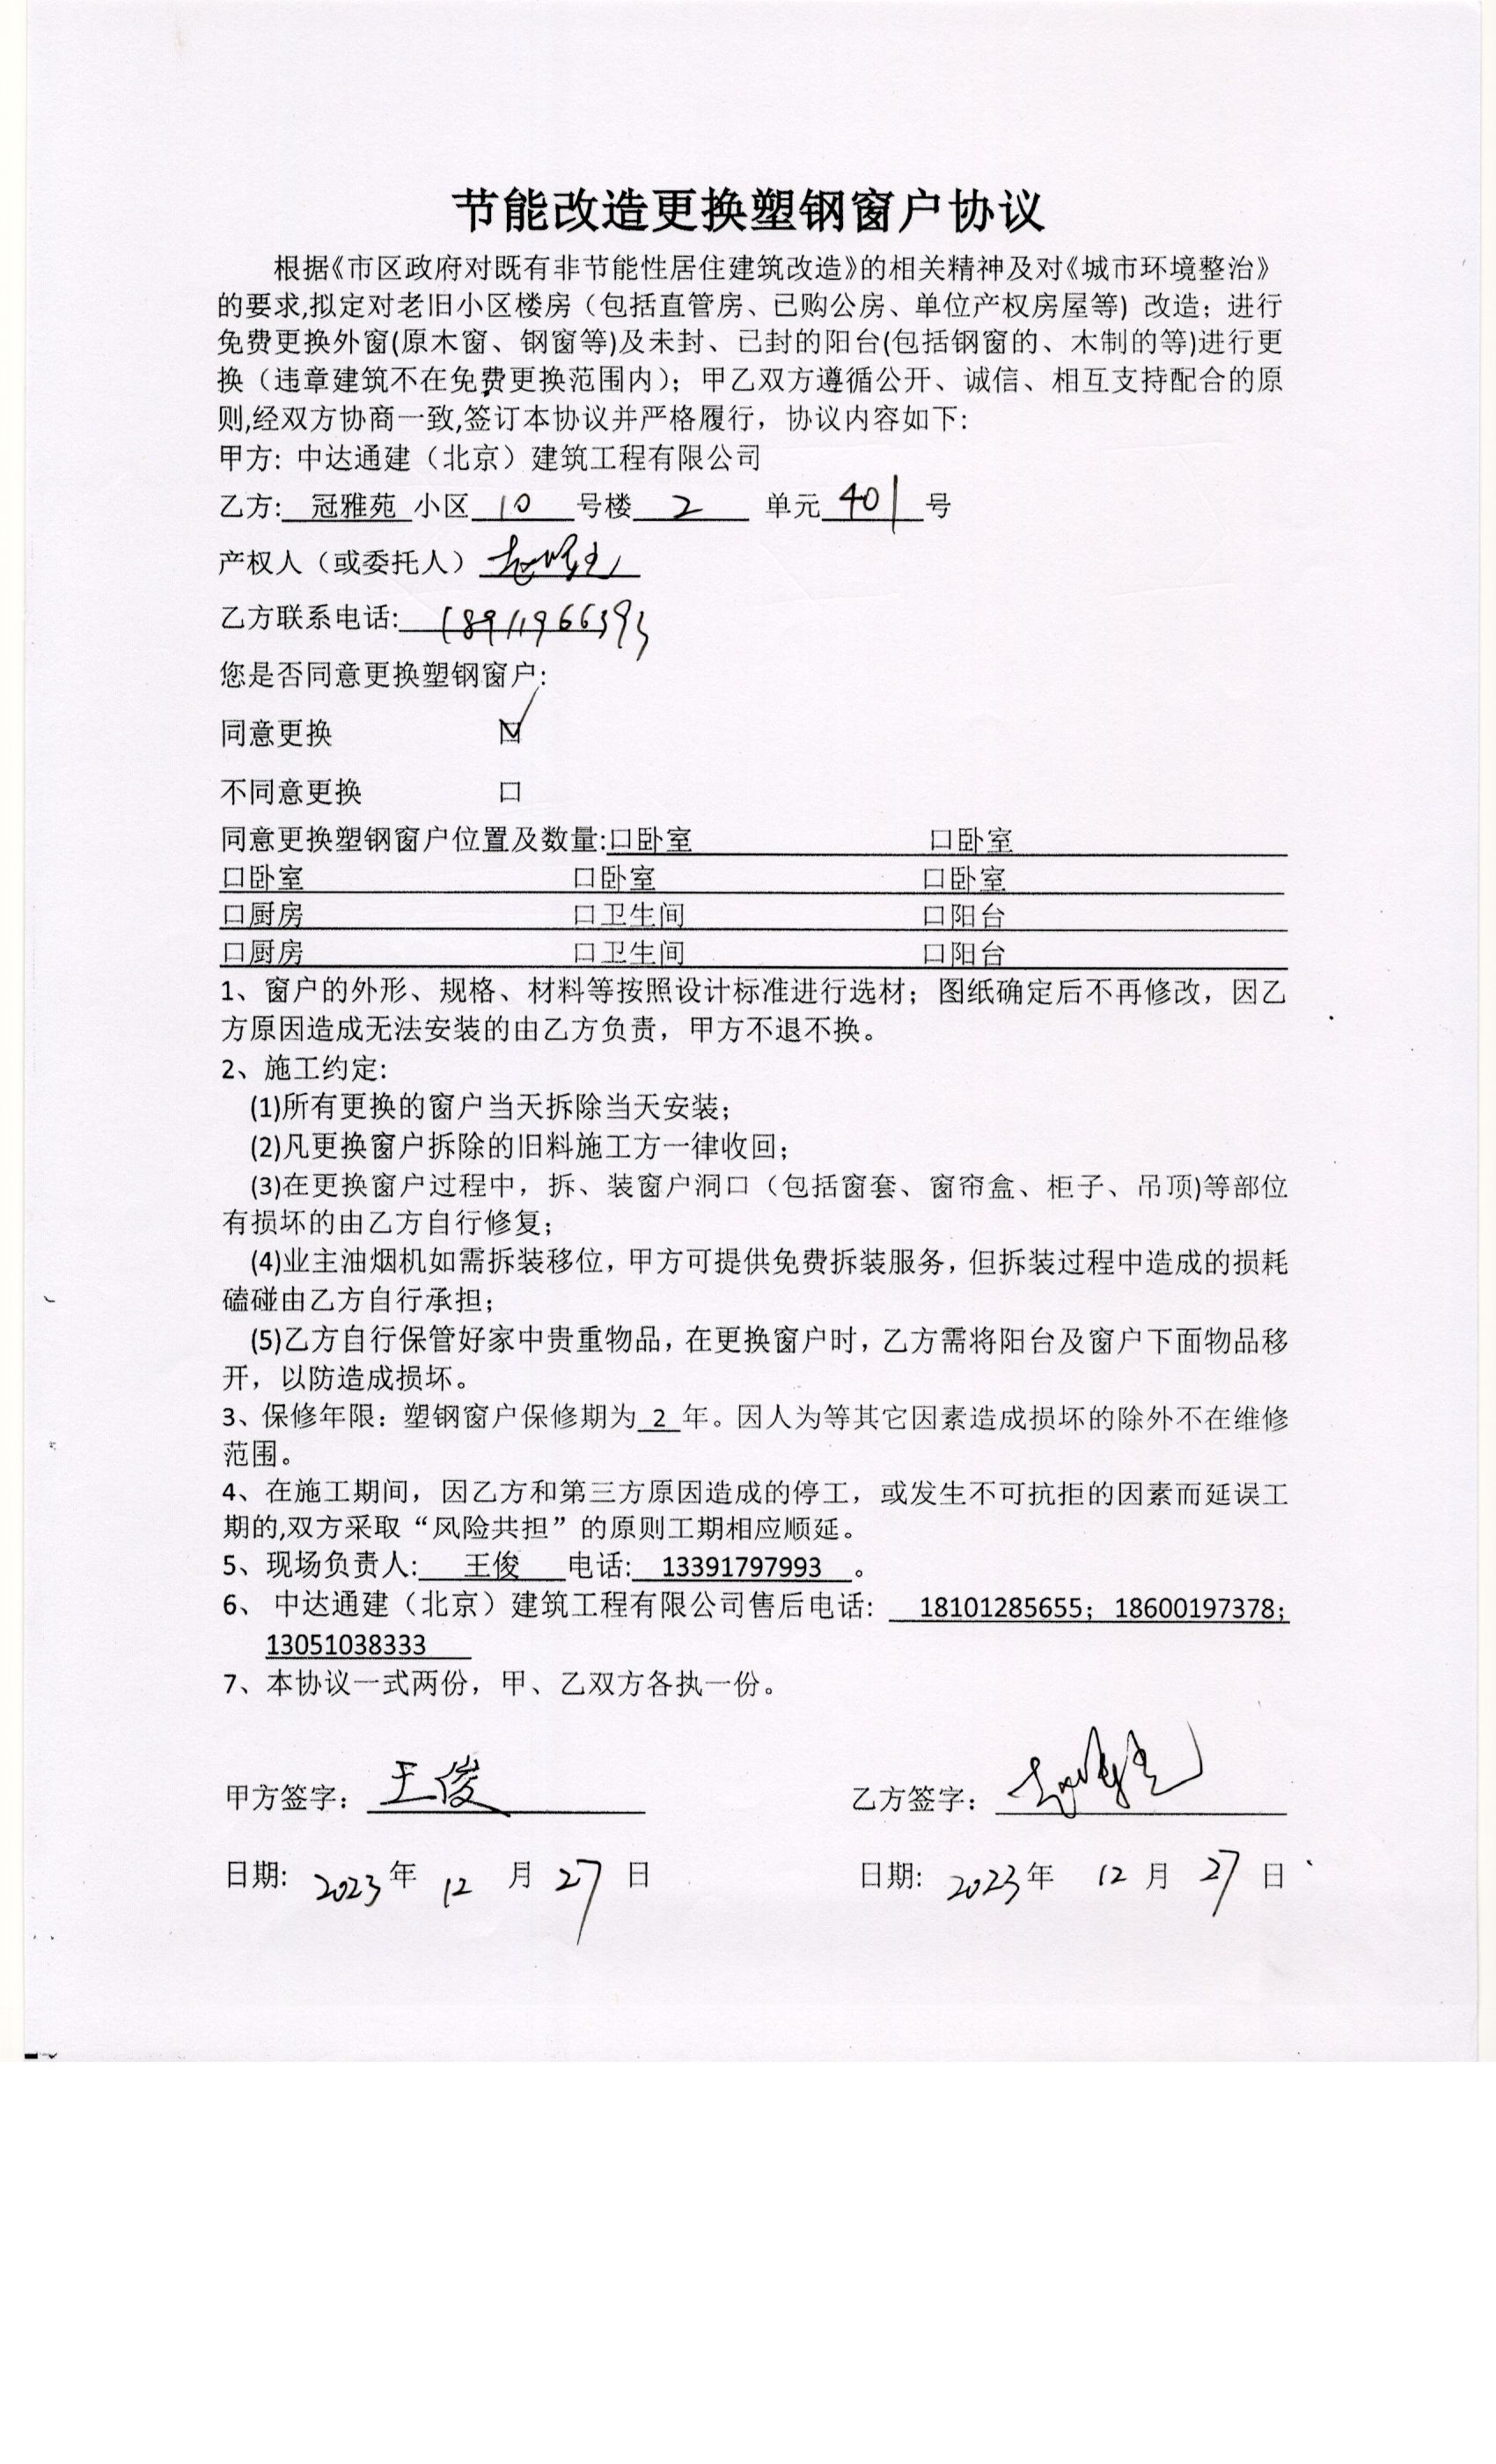 节能改造更换塑钢窗户协议
根据《市区政府对既有非节能性居住建筑改造》的相关精神及对《城市环境整治》
的要求,拟定对老旧小区楼房（包括直管房、已购公房、单位产权房屋等) 改造；进行
免费更换外窗(原木窗、钢窗等)及未封、已封的阳台(包括钢窗的、木制的等)进行更
换（违章建筑不在免费更换范围内)；甲乙双方遵循公开、诚信、相互支持配合的原
则,经双方协商一致,签订本协议并严格履行，协议内容如下:
甲方: 中达通建（北京）建筑工程有限公司
乙方: 冠雅苑 小区 10 号楼 2 单元 401 号
产权人（或委托人）
乙方联系电话:
您是否同意更换塑钢窗户:
同意更换 ☑
不同意更换 口
同意更换塑钢窗户位置及数量:口卧室 口卧室
口卧室 口卧室 口卧室
口厨房 口卫生间 口阳台
口厨房 口卫生间 口阳台
1、窗户的外形、规格、材料等按照设计标准进行选材；图纸确定后不再修改，因乙
方原因造成无法安装的由乙方负责，甲方不退不换。
2、施工约定:
(1)所有更换的窗户当天拆除当天安装；
(2)凡更换窗户拆除的旧料施工方一律收回；
(3)在更换窗户过程中，拆、装窗户洞口（包括窗套、窗帘盒、柜子、吊顶)等部位
有损坏的由乙方自行修复；
(4)业主油烟机如需拆装移位，甲方可提供免费拆装服务，但拆装过程中造成的损耗
磕碰由乙方自行承担；
(5)乙方自行保管好家中贵重物品，在更换窗户时，乙方需将阳台及窗户下面物品移
开，以防造成损坏。
3、保修年限：塑钢窗户保修期为 2 年。因人为等其它因素造成损坏的除外不在维修
范围。
4、在施工期间，因乙方和第三方原因造成的停工，或发生不可抗拒的因素而延误工
期的,双方采取“风险共担”的原则工期相应顺延。
5、现场负责人: 王俊 电话: 13391797993 。
6、 中达通建（北京）建筑工程有限公司售后电话: 18101285655；18600197378；
13051038333
7、本协议一式两份，甲、乙双方各执一份。
甲方签字： 王俊 乙方签字：
日期: 2023 年 12 月 27 日 日期: 2023 年 12 月 27 日